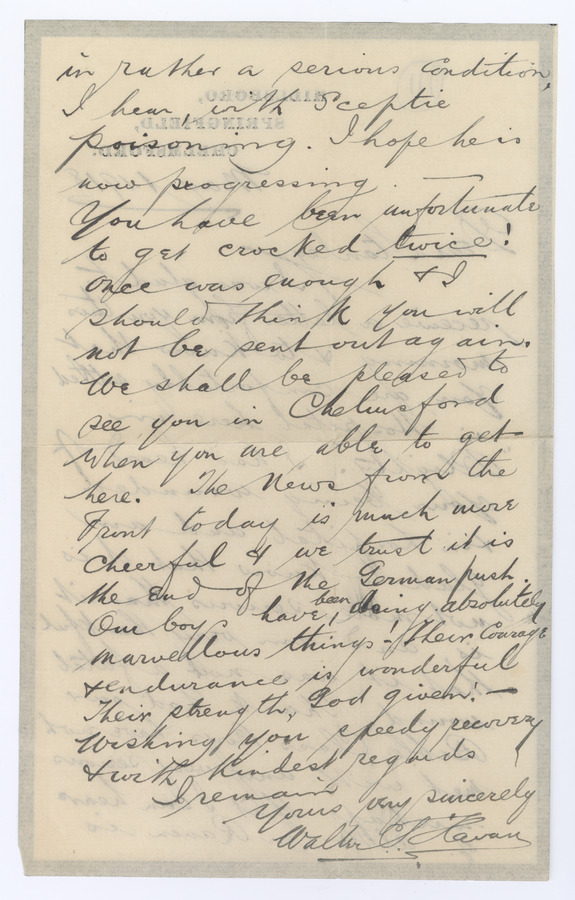 in rather a serious condition,
I hear, with Sceptie
poisoning. I hope he is
now progressing. —
You have been unfortunate
to get crocked twice!
Once was enough & I
should think you will
not be sent out again.
We shall be pleased to
see you in Chelmsford
when you are able to get
here. The News from the
Front today is much more
cheerful & we trust it is
the end of the German push.
Our boys have been doing absolutely
marvellous things! Their Courage
& endurance is wonderful
Their strength, God given! —
Wishing you speedy recovery
& with kindest regards
I remain
Yours very sincerely
Walter
SPRINGFIELD,
CHELMSFORD.